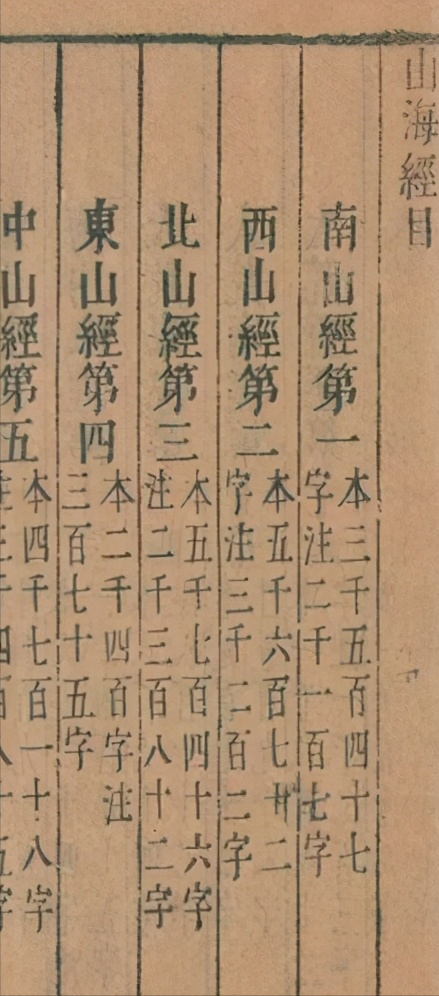 山海經目
南山經第一
本三千五百四十七
字注二千一百七字
西山經第二
本五千六百七廿二
字注三千二百二字
北山經第三
本五千七百四十六字
注二千三百八十二字
東山經第四
本二千四百字注
三百七十五字
中山經第五
本四千七百一十八字
注三千四百八十五字